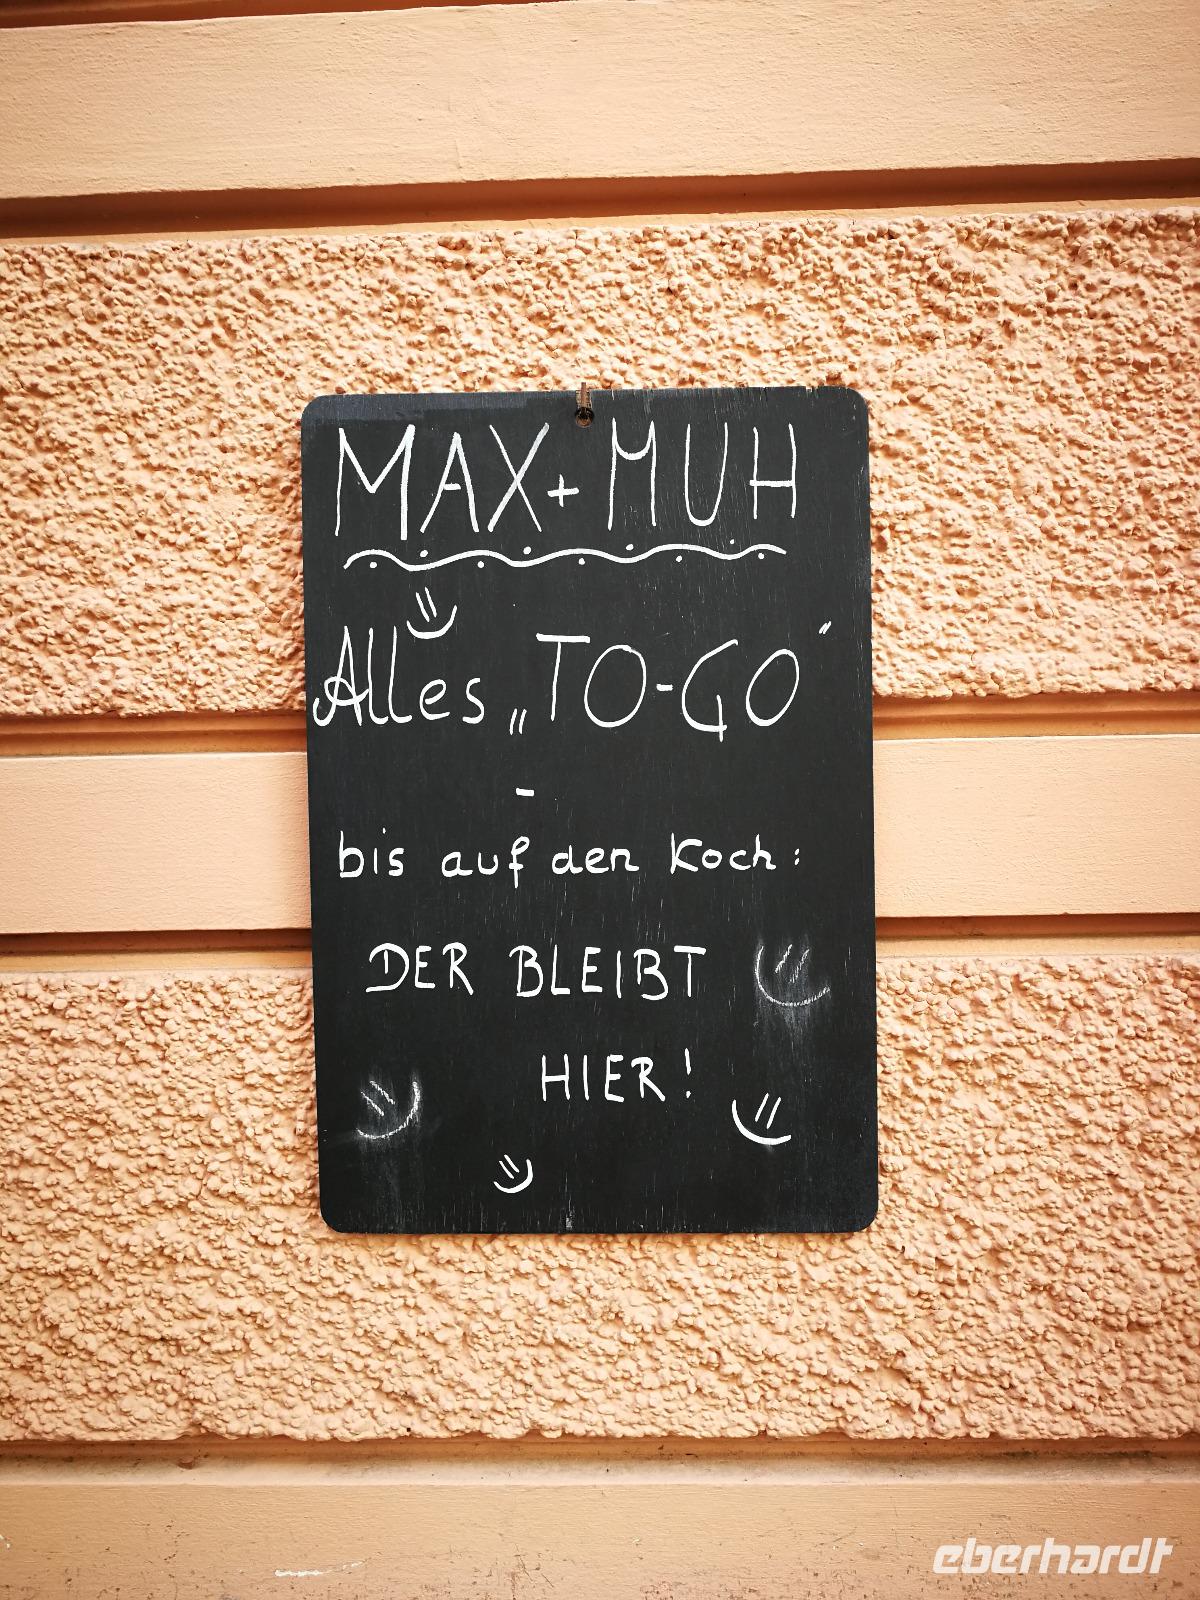 MAX+MUH
Alles „TO-GO"
-
bis auf den Koch:
DER BLEIBT
HIER!
eberhardt